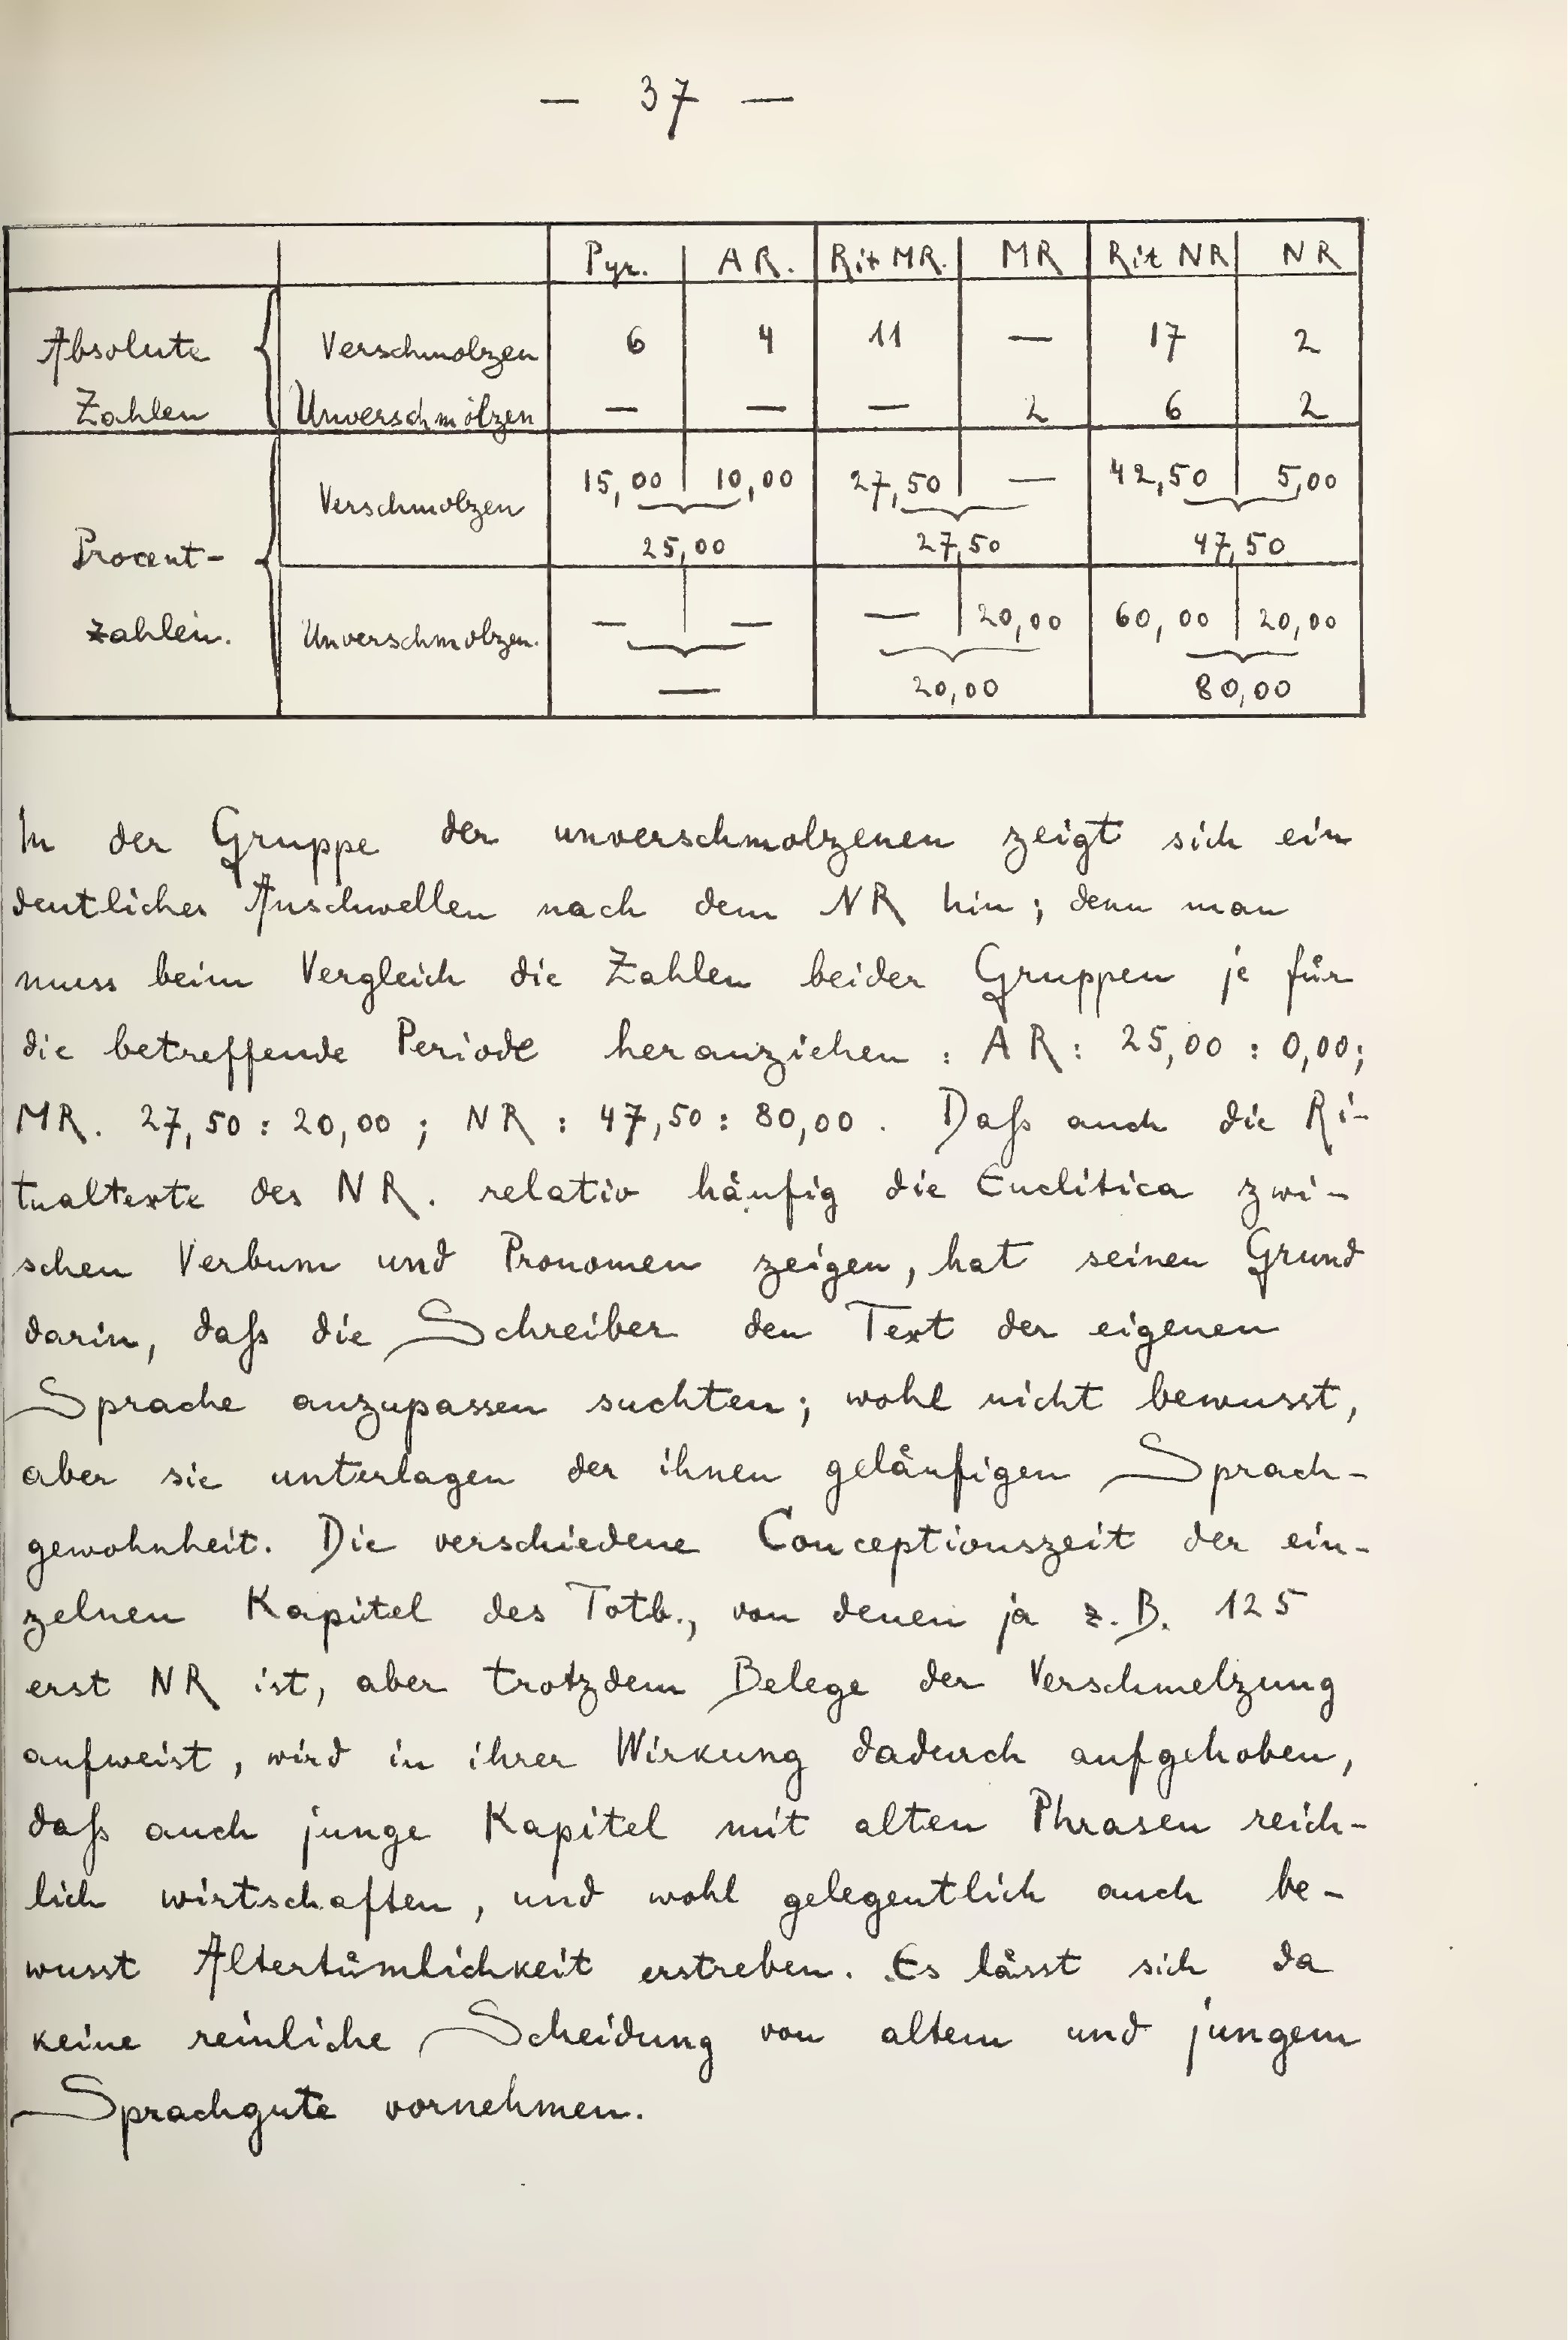 — 37 —
Pyr. AR. Rit MR. MR Rit NR NR
Absolute Verschmolzen 6 4 11 — 17 2
Zahlen Unverschmolzen — — — 2 6 2
Verschmolzen 15,00 10,00 27,50 — 42,50 5,00
Procent- 25,00 27,50 47,50
zahlen. Unverschmolzen. — — — 20,00 60,00 20,00
— 20,00 80,00
In der Gruppe der unverschmolzenen zeigt sich ein
deutliches Anschwellen nach dem NR hin; denn man
muss beim Vergleich die Zahlen beider Gruppen je für
die betreffende Periode heranziehen: AR: 25,00 : 0,00;
MR. 27,50 : 20,00; NR : 47,50 : 80,00. Daß auch die Ri-
tualtexte des NR. relativ häufig die Enclitica zwi-
schen Verbum und Pronomen zeigen, hat seinen Grund
darin, daß die Schreiber den Text der eigenen
Sprache anzupassen suchten; wohl nicht bewusst,
aber sie unterlagen der ihnen geläufigen Sprach-
gewohnheit. Die verschiedene Conceptionszeit der ein-
zelnen Kapitel des Totb., von denen ja z.B. 125
erst NR ist, aber trotzdem Belege der Verschmelzung
aufweist, wird in ihrer Wirkung dadurch aufgehoben,
daß auch junge Kapitel mit alten Phrasen reich-
lich wirtschaften, und wohl gelegentlich auch be-
wusst Altertümlichkeit erstreben. Es lässt sich da
keine reinliche Scheidung von altem und jungem
Sprachgute vornehmen.